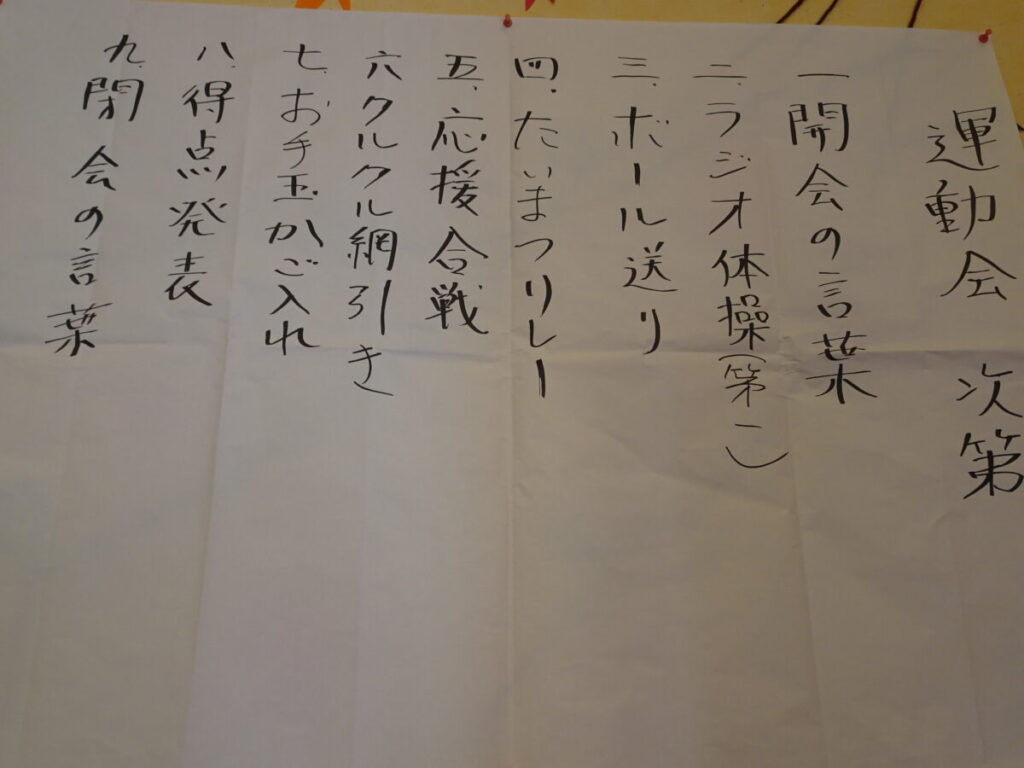 運動会 次第
一 開会の言葉
二.ラジオ体操(第一)
三.ボール送り
四.たいまつリレー
五.応援合戦
六 クルクル網引き
七.お手玉かご入れ
八 得点発表
九.閉会の言葉